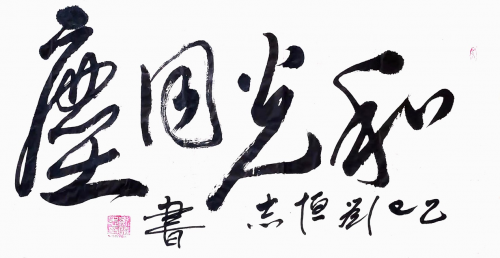 和光同塵
乙巳劉恒志書